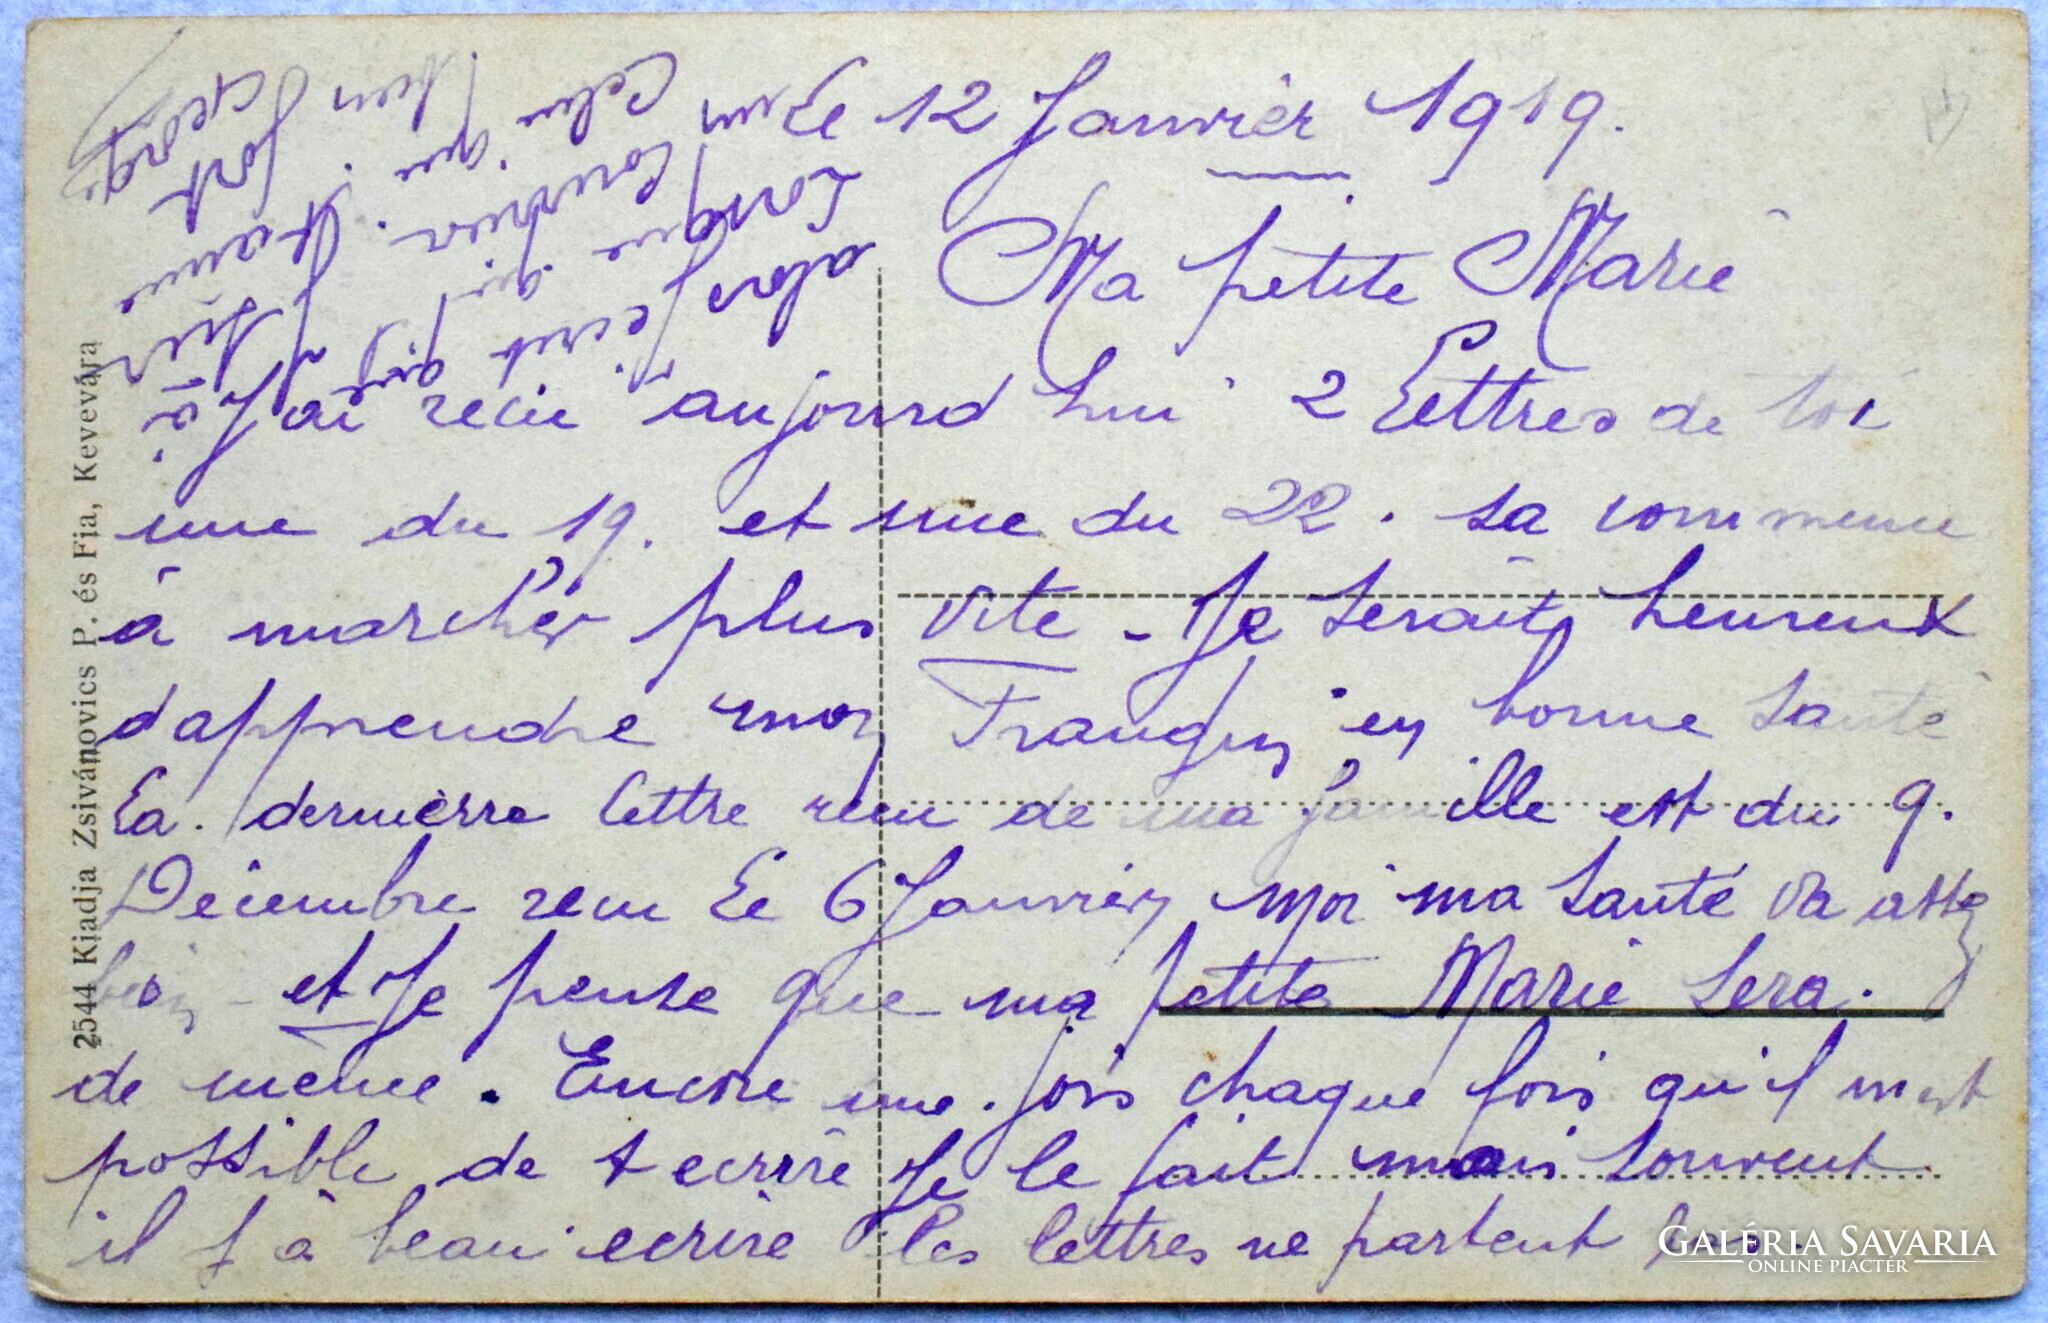 Le 12 Janvier 1919.
Ma petite Marie
J'ai reciu aujourd hui 2 Lettres de toi
une du 19. et une du 22. sa commence
à marcher plus vite - Je serait heureux
d'apprendre mon Frangin en bonne santé
La dernierre lettre recu de ma famille est du 9.
Décembre recu Le 6 Janvier moi ma santé va assez
bien - et Je pense que ma petite Marie sera.
de même. Encore une fois chaque fois qu'il m'est
possible de t ecrire Je le fait mais souvent
il f à beau ecrire les lettres ne partent pas.
alors
Lorsque
2544 Kiadja Zsivánovics P. és Fia, Kevevára
GALÉRIA SAVARIA
ONLINE PIACTÉR